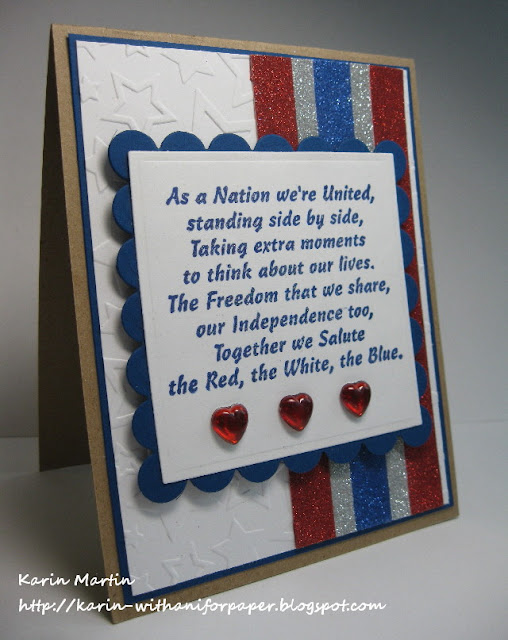 As a Nation we're United,
standing side by side,
Taking extra moments
to think about our lives.
The Freedom that we share,
our Independence too,
Together we Salute
the Red, the White, the Blue.
Karin Martin
http://karin-withaniforpaper.blogspot.com